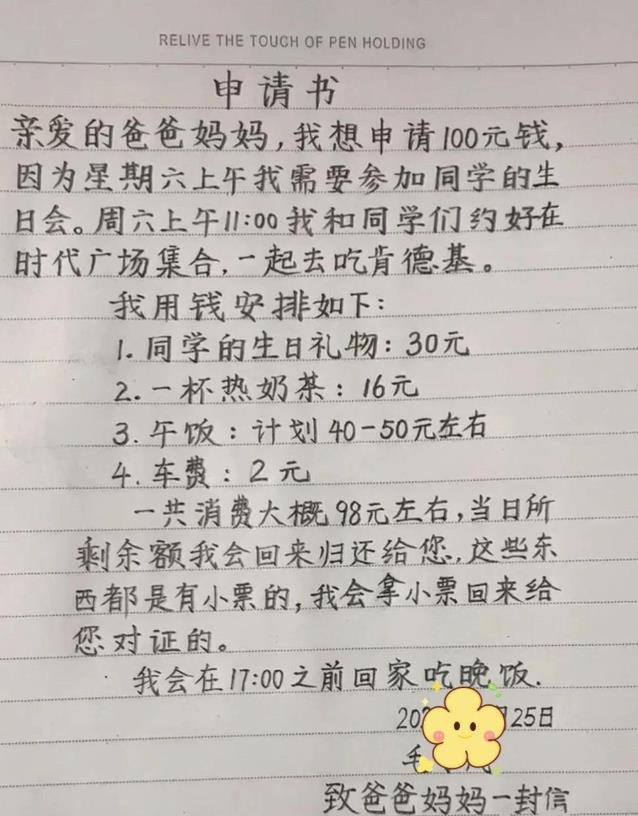 RELIVE THE TOUCH OF PEN HOLDING
申请书
亲爱的爸爸妈妈,我想申请100元钱,
因为星期六上午我需要参加同学的生
日会。周六上午11:00我和同学们约好在
时代广场集合,一起去吃肯德基。
我用钱安排如下:
1.同学的生日礼物:30元
2.一杯热奶茶:16元
3.午饭:计划40-50元左右
4.车费:2元
一共消费大概98元左右,当日所
剩余额我会回来归还给您,这些东
西都是有小票的,我会拿小票回来给
您对证的。
我会在17:00之前回家吃晚饭.
20 25日
毛
致爸爸妈妈一封信